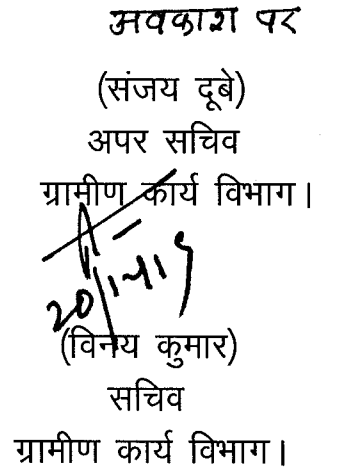 अवकाश पर
(संजय दूबे)
अपर सचिव
ग्रामीण कार्य विभाग।
(विनय कुमार)
सचिव
ग्रामीण कार्य विभाग।